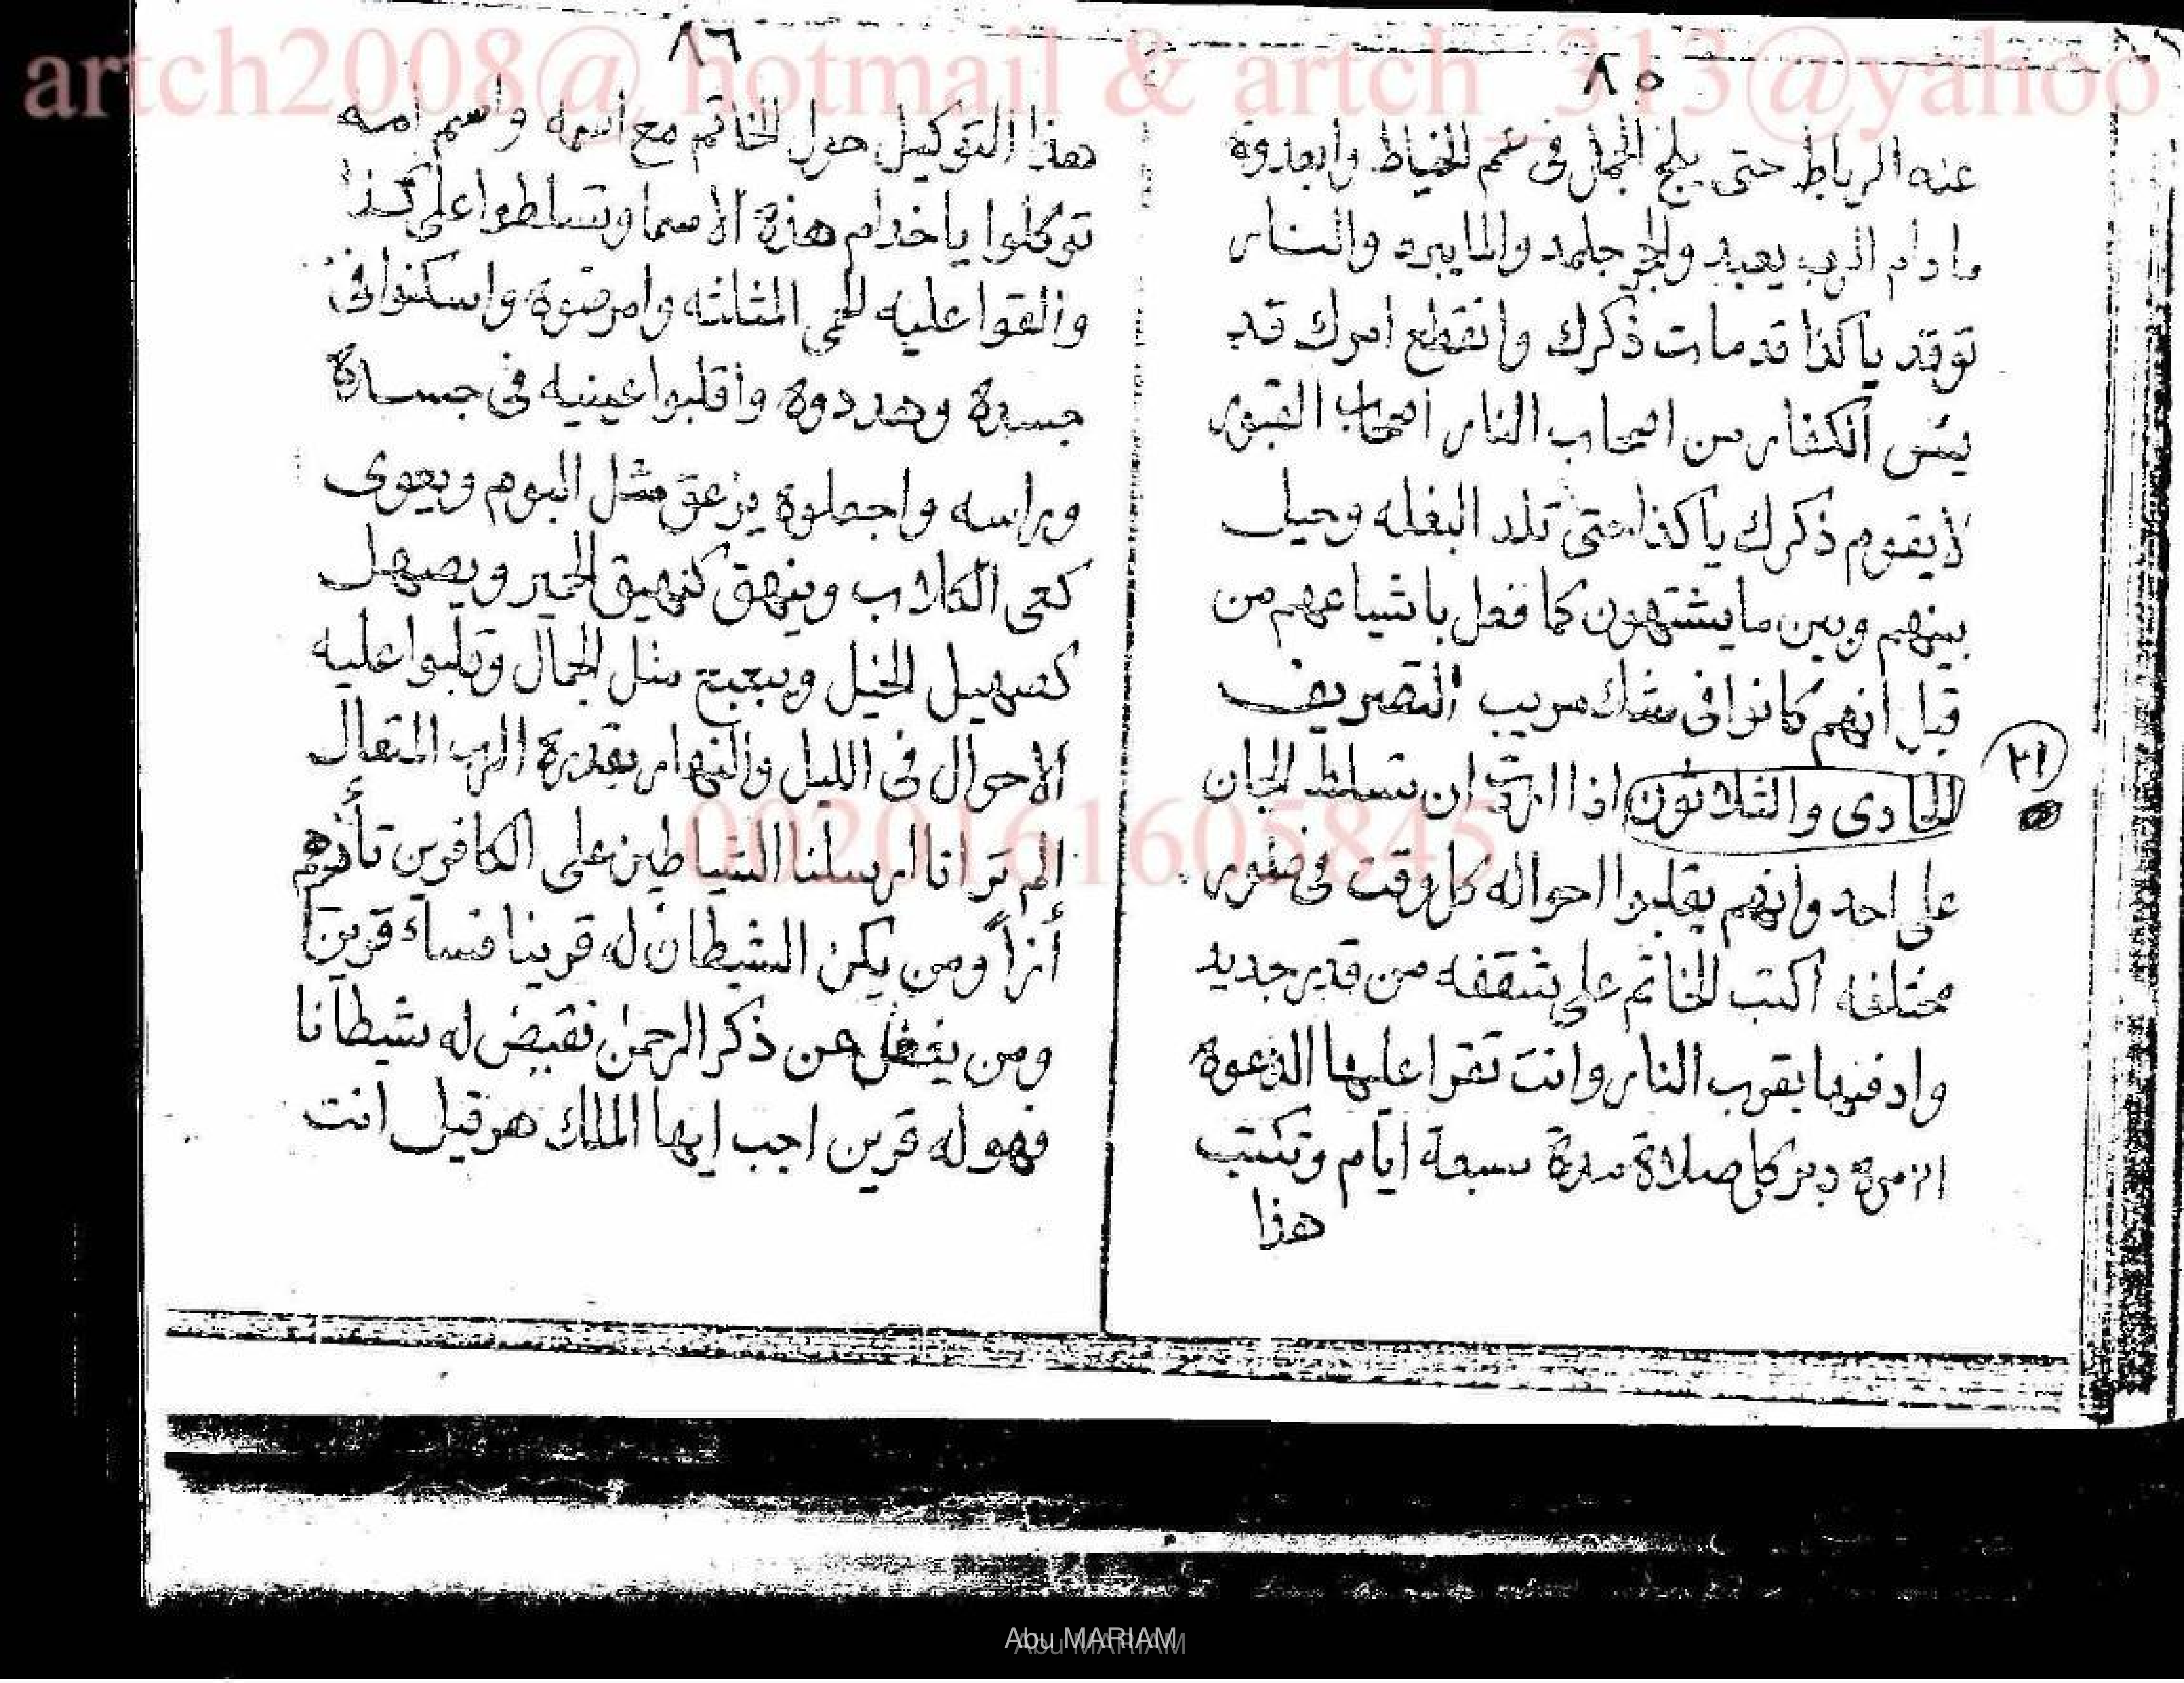 artch2008@ hotmail & artch_313@yahoo
٨٥
عنه الرباط حتى يلج الجمل فى سم الخياط وابعدوة
مادام الرب يعبد والحجر جلمد والما يبرد والنار
توقد يا كذا قد مات ذكرك وانقطع امرك قد
يئس الكفار من اصحاب النار أصحاب القبور
لايقوم ذكرك يا كذا حتى تلد البغله وحيل
بينهم وبين ما يشتهون كما فعل باشياعهم من
قبل انهم كانوا فى شك مريب التصريف
٣١
الحادى والثلاثون اذا اردت ان تسلط الجان
على احد وانهم يقلبوا احواله كل وقت فى
مختلفه اكتب الخاتم على شقفه من قدر جديد
وادفنها بقرب النار وانت تقرا عليها الدعوة
دبر كل صلاة مدة سبعة ايام وتكتب
هذا
٨٦
هذا التوكيل حول الخاتم مع اسمه واسم امه
توكلوا ياخدام هذة الاسما وتسلطوا على كذا
والقوا عليه الحمى المثلثه وامرضوة واسكنوا فى
جسدة وهددوة وأقلبوا عينيه فى جسدة
وراسه واجعلوة يزعق مثل البوم ويعوى
كعى الكلاب وينهق كنهيق الحمير ويصهل
كسهيل الخيل ويبعبع مثل الجمال وقلبوا عليه
الاحوال فى الليل والنهار بقدرة الرب المتعال
0020161605845
الم تر انا ارسلنا الشياطين على الكافرين تأزهم
أزاً ومن يكن الشيطان له قرينا فساء قرينا
ومن عن ذكر الرحمن نقيض له شيطانا
فهو له قرين اجب ايها الملك هرقيل انت
Abu MARIAM